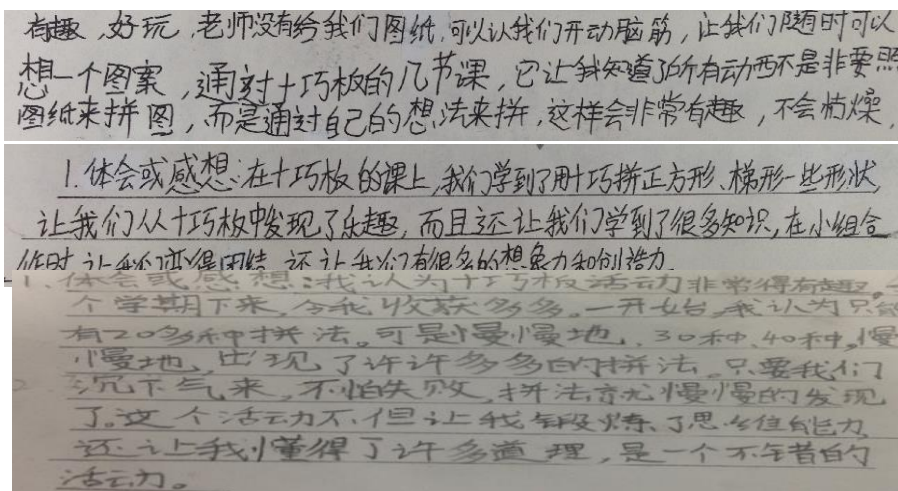 有趣,好玩,老师没有给我们图纸,可以认我们开动脑筋,让我们随时可以
想一个图案,通过十巧板的几节课,它让我知道了所有动西不是非要照
图纸来拼图,而是通过自己的想法来拼,这样会非常有趣,不会枯燥,
1.体会或感想:在十巧板的课上,我们学到了用十巧拼正方形、梯形一些形状,
让我们从十巧板中发现了乐趣,而且还让我们学到了很多知识,在小组合
作时,让我们变得团结,还让我们有很多的想象力和创造力
1、体会或感想:我认为十巧板活动非常得有趣。一
个学期下来,令我收获多多。一开始,我认为只能
有20多种拼法。可是慢慢地,30种、40种,慢
慢地,出现了许许多多的拼法。只要我们
沉下气来,不怕失败,拼法就慢慢的发现
了。这个活动不但让我锻炼了思维能力,
还让我懂得了许多道理,是一个不错的
活动。